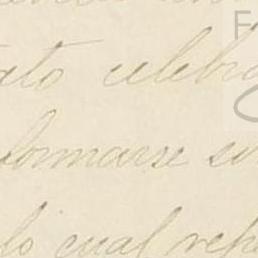 ato celebra
formarse su
lo cual repe